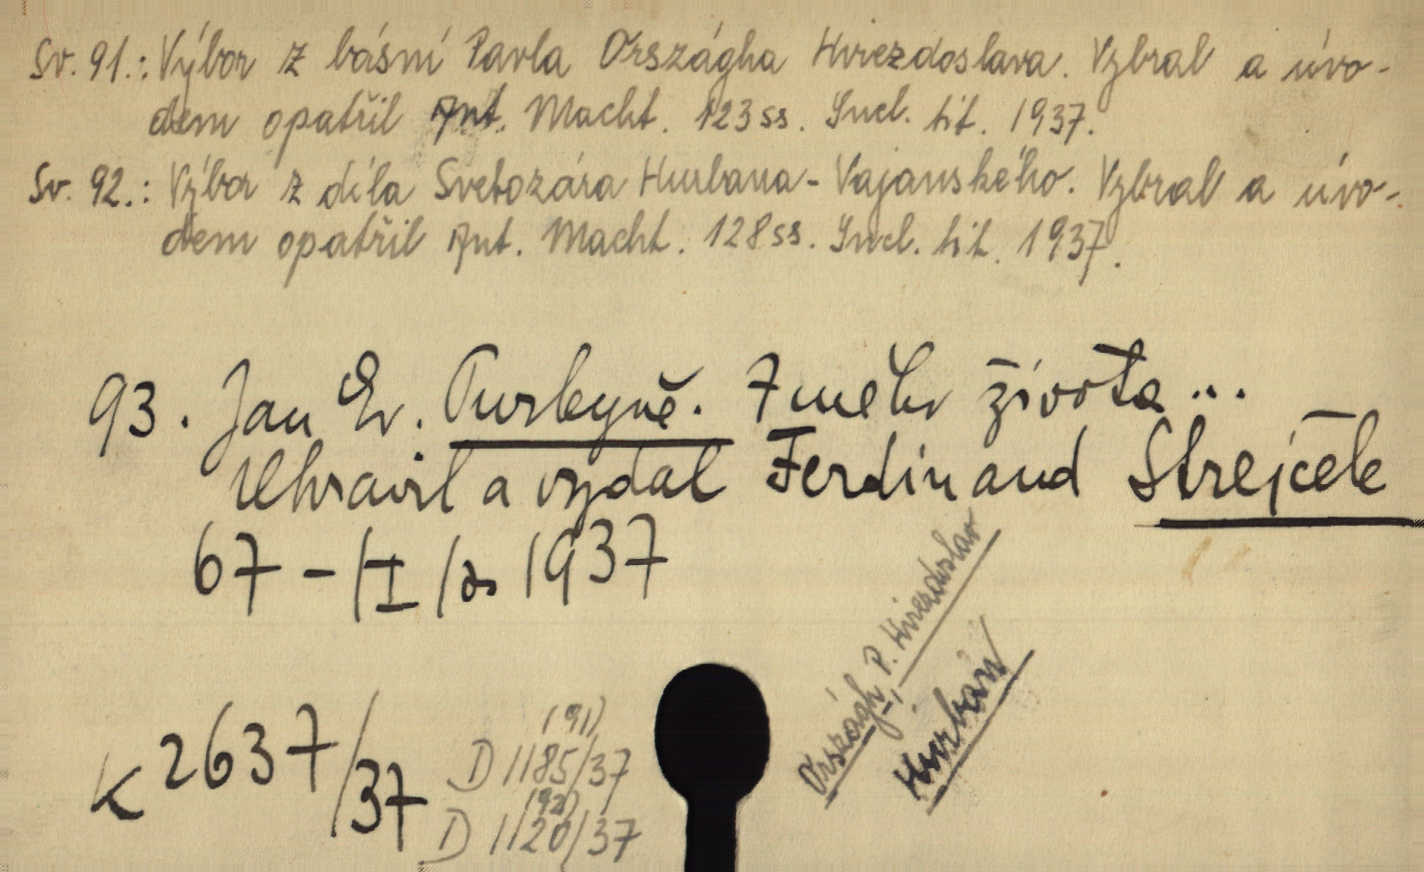 Sv. 91.: Výbor z básní Pavla Országha Hviezdoslava. Vybral a úvo-
dem opatřil Ant. Macht. 123 ss. Incl. tit. 1937.
Sv. 92.: Výbor z díla Svetozára Hurbana-Vajanského. Vybral a úvo-
dem opatřil Ant. Macht. 128 ss. Incl. tit. 1937.
93. Jan Ev. Purkyně. Z mého života...
Uhravil a vydal Ferdinand Strejček
67 - /I/ ss 1937
K 2637/37
(91)
D 1185/37
(92)
D 1120/37
Országh, P. Hviezdoslav
Hurban